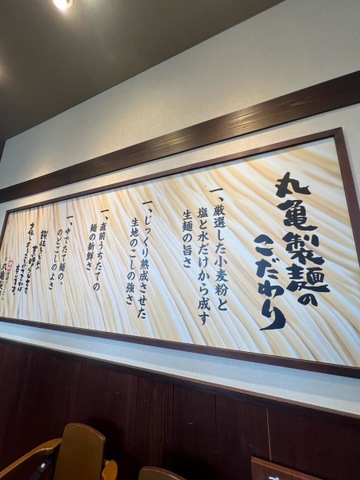 丸亀製麺の
こだわり
一、厳選した小麦粉と
塩と水だけから成す
生麺の旨さ
一、じっくり熟成させた
生地のこしの強さ
一、直前うちたての
麺の新鮮さ
一、ゆでたて麺の、
のどごしのこしさ